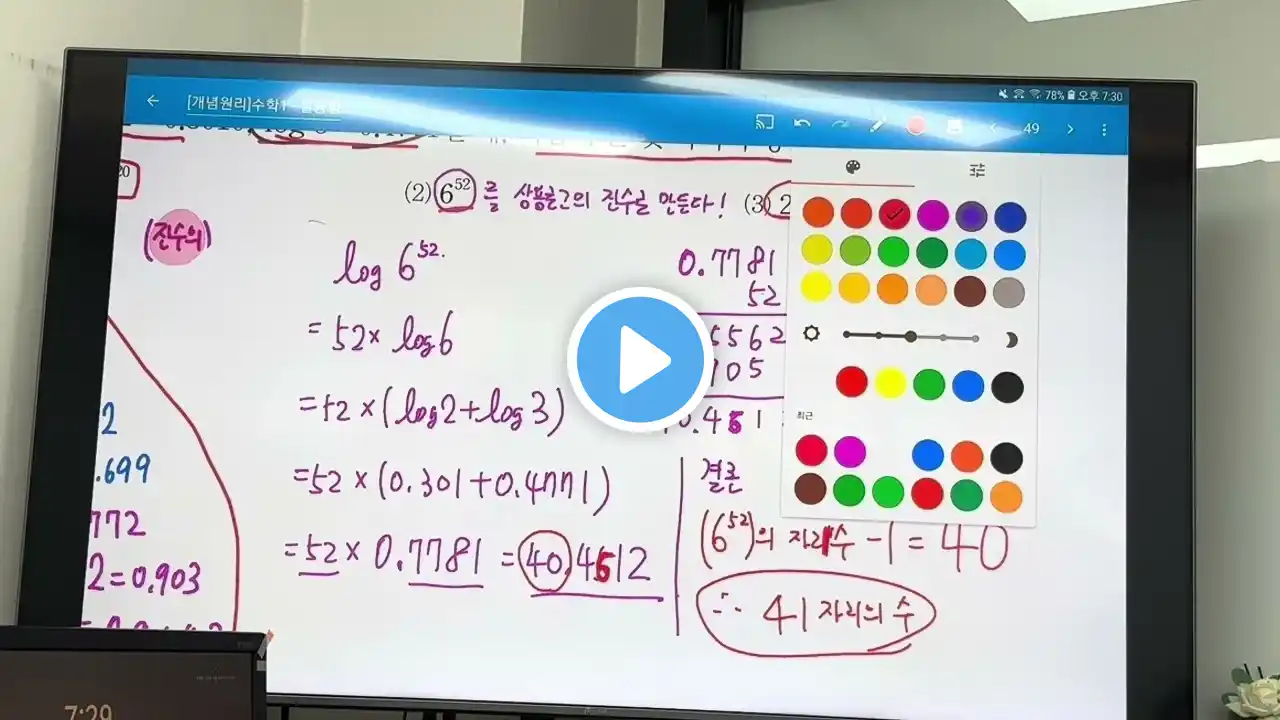 [개념원리]수학1
78% 오후 7:30
49
20
(2) 6^52 를 상용로그의 진수로 만든다! (3) 2
(진수의)
log 6^52.
= 52 × log6
= 52 × (log2+log3)
=52 × (0.301+0.4771)
=52 × 0.7781 = 40.4612
0.7781
52
5562
105
0.461
최근
결론
(6^52)의 자리수 -1 = 40
∴ 41 자리의 수
2
.699
772
2=0.903
7:29